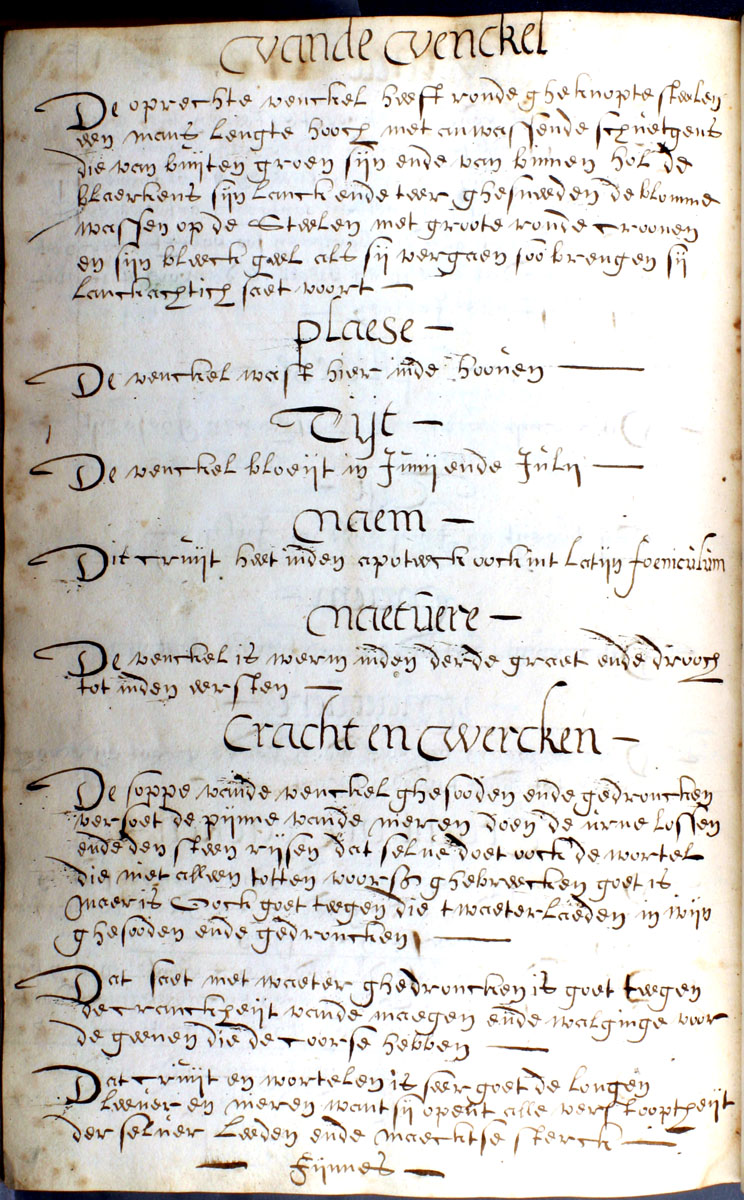 Vande Venckel
De oprechte venckel heeft ronde gheknopte steelen
een mans lengte hooch met anwassende schuetgens
die van buijten groen sijn ende van binnen hol de
blaerkens sijn lanck ende teer ghesneeden de blomme
wassen op de Steelen met groote ronde croonen
en sijn bleeck geel als sij vergaen soo brengen sij
lanckachtich saet voort —
Plaese —
De venckel wast hier inde hooven —
Tijt —
De venckel bloeijt in Junij ende Julij —
Naem —
Dit cruijt heet inden apoteeck oock int Latijn foeniculum
Naetuere —
De venckel is werm inden derde graet ende drooch
tot inden eersten —
Cracht en Wercken —
De soppe vande venckel ghesooden ende gedroncken
versoet de pijnne vande nieren doen de urne lossen
ende den steen rijsen dat selve doet oock de wortel
die niet alleen totten voors ghebreecken goet is
Maer is Oock goet teegen die twaeterlaeden in wijn
ghesooden ende gedroncken —
Dat saet met waeter ghedroncken is goet teegen
de cranckheijt vande maegen ende walginge voor
de geenen die de coorse hebben —
Dat cruijt en wortelen is seer goet de longen
leever en nieren want sij opent alle verstooptheijt
der selver leeden ende maecktse sterck —
— Fijnnes —